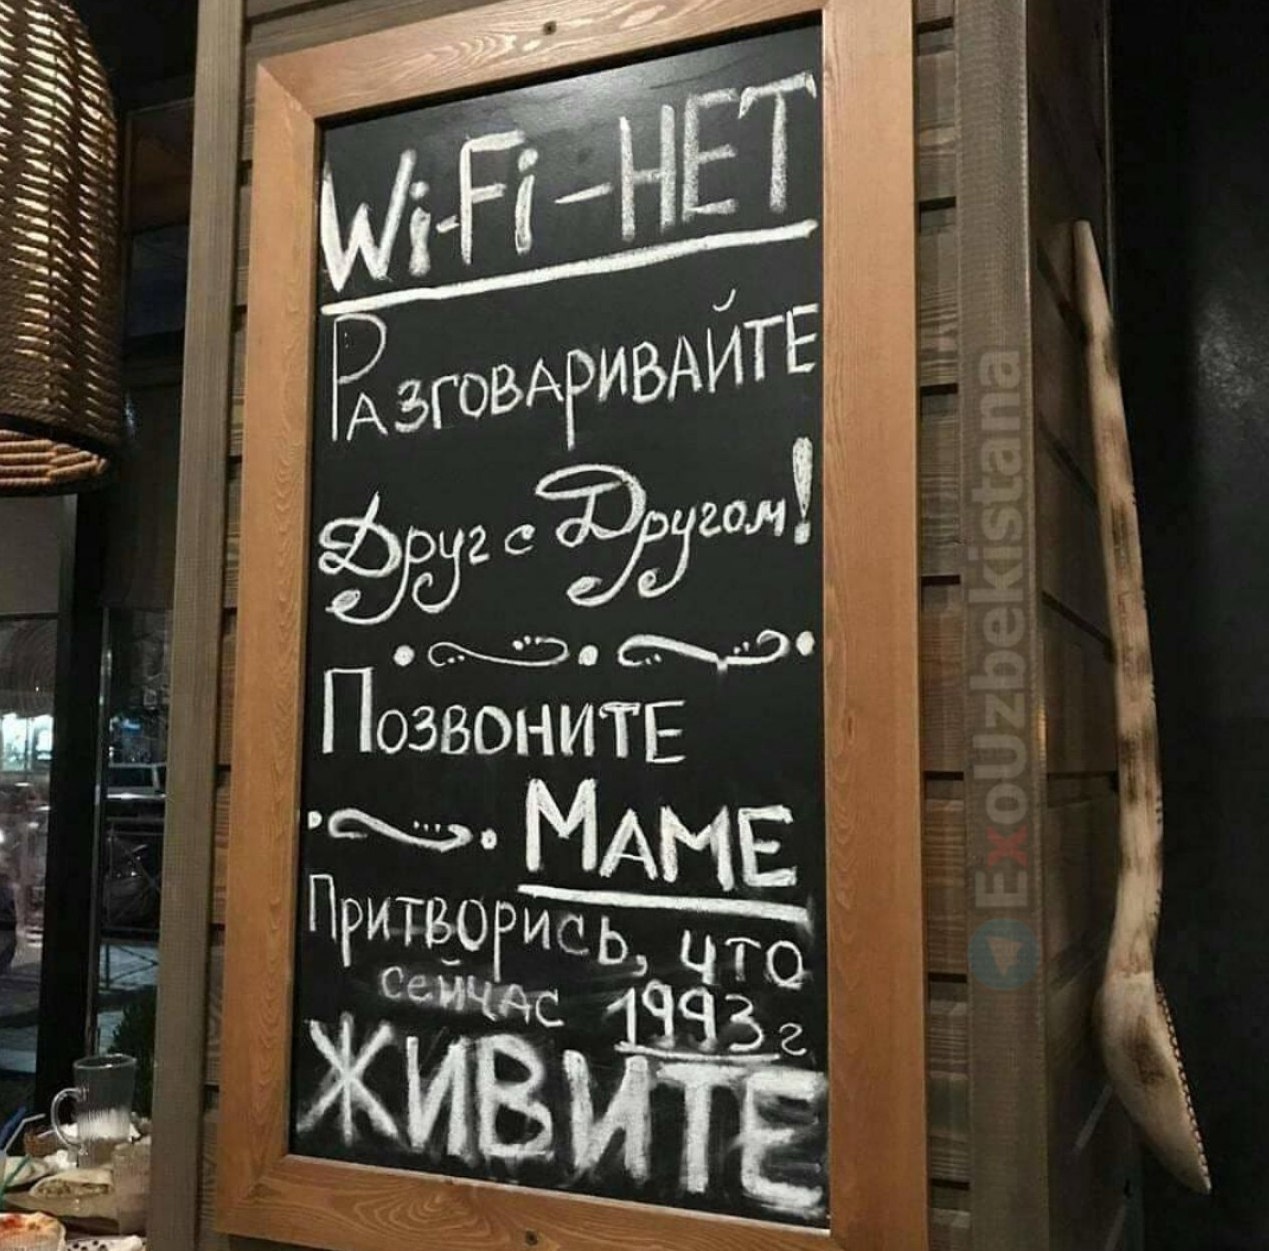 Wi-Fi – НЕТ
РАЗГОВАРИВАЙТЕ
Друг с Другом!
ПОЗВОНИТЕ
МАМЕ
ПРИТВОРИСЬ, ЧТО
сейчас 1993 г
ЖИВИТЕ
ExoUzbekistana